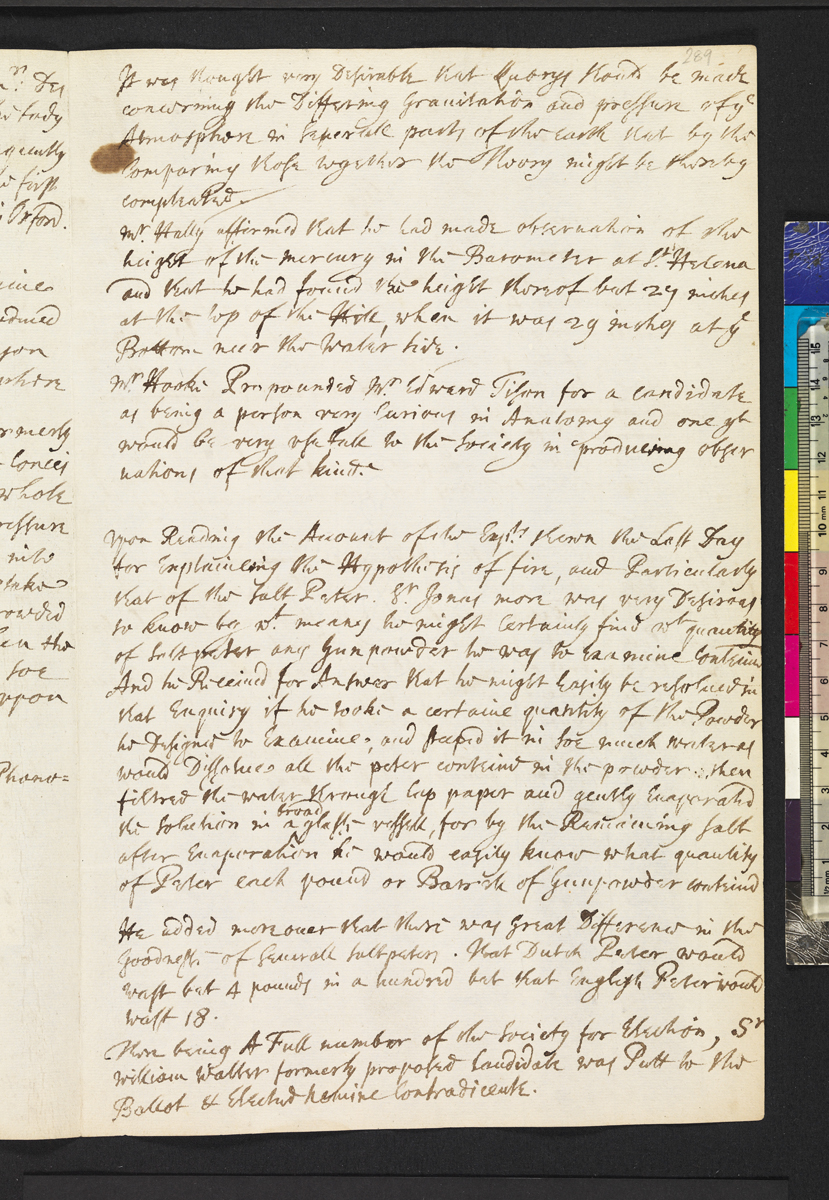 289
It was thought very Desirable that Quarys should be made
concerning the Differing Gravitation and pressure of ye
Atmosphere in severall parts of the earth that by the
Comparing those together the Theory might be thereby
compleated.
Mr. Hally affirmed that he had made observation of the
height of the mercury in the Barometer at St. Helena
and that he had found the height thereof but 27 inches
at the top of the Hill, when it was 29 inches at ye
Bottom neer the Water side.
Mr. Hooke Propounded Mr. Edward Tison for a candidate
as being a person very Curious in Anatomy and one yt
would be very usefull to the Society in producing obser
uations of that kind.
Upon Reading the Account of the Expts. shewn the Last Day
for Explaineing the Hypothesis of fire, and Particularly
that of the Salt Peter. Sr. Jonas more was very Desirous
to know by wt. means he might Certainly find wt quantity
of Saltpeter any Gunpowder he was to Examine Containd
And he Receiued for Answer that he might Easily be resolued in
that Enquiry if he tooke a certaine quantity of the Powder
he Designed to Examine, and steepd it in soe much water as
would Dissolue all the peter containd in the powder: then
filtred the water through Cap paper and gently Euaporated
the Solution in a broad glasse vessell, for by the Remaining salt
after Euaporation he would easily know what quantity
of Peter each pound or Barrell of Gunpowder containd
He added moreouer that there was Great Difference in the
Goodnesse of seuerall Saltpeters. That Dutch Peter would
wast but 4 pounds in a hundred but that English Peter would
wast 18.
There being A Full number of the Society for Election, Sr
William Waller formerly proposed Candidate was Putt to the
Ballot & Elected Nemine Contradicente.